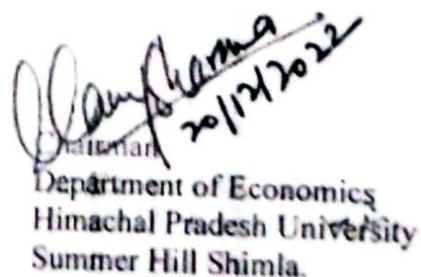 Sharma
20/12/2022
Chairman
Department of Economics
Himachal Pradesh University
Summer Hill Shimla.